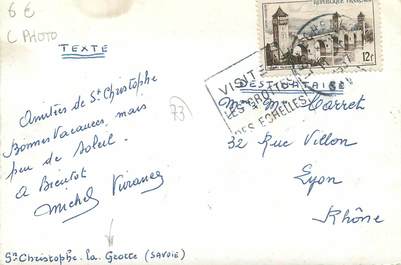 6€
C PHOTO
TEXTE
REPUBLIQUE FRANÇAISE
12F
VISITE
LES GROTTES
DES ECHELLES
DESTINATAIRE
Amitiés de St Christophe
Bonnes Vacances, mais
peu de Soleil.
A Bientôt
Michel
73
Carret
32 Rue Villon
Lyon
Rhône
St Christophe. la. Grotte (SAVOIE)